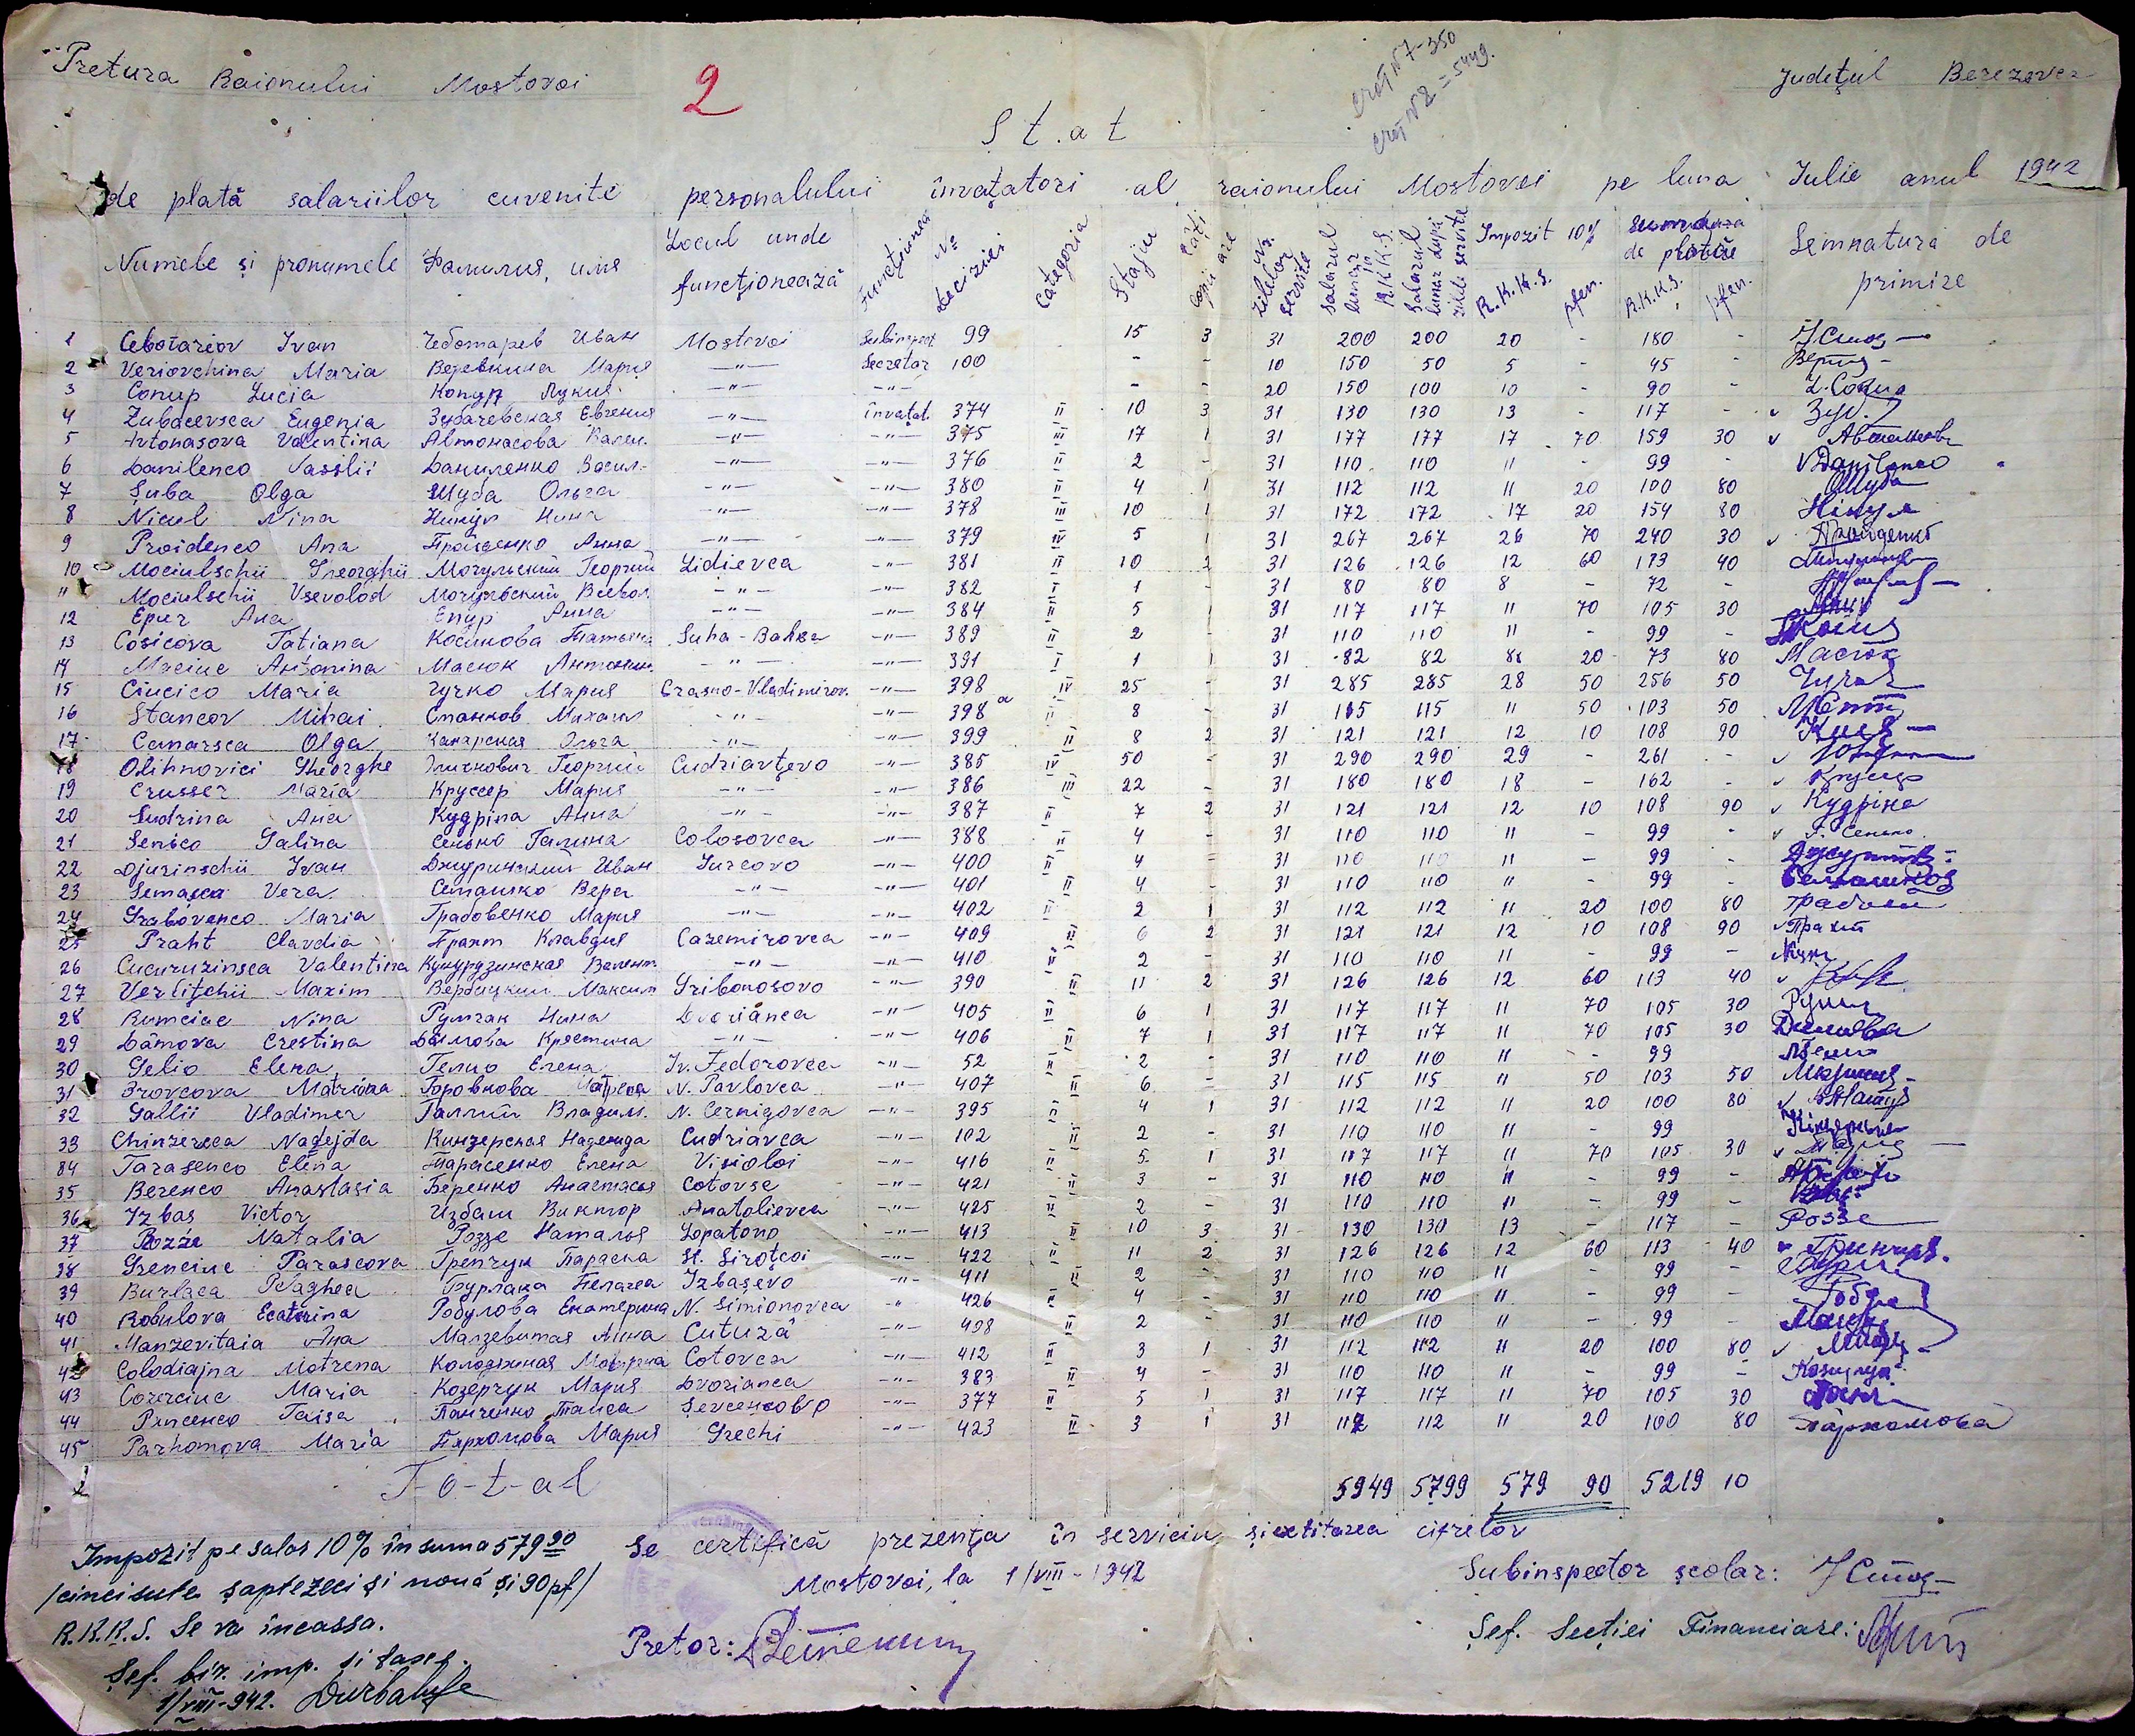 Pretura Raionului Mostovoi 2 Județul Berezovca
Stat
de plată salariilor cuvenite personalului învațatori al raionului Mostovoi pe luna Iulie anul 1942
Numele și pronumele Фамилия, имя Locul unde funcționează Funcțiunea № deciziei Categoria Stajiu Câți copii are Nr. zilelor servite Salarul lunar în R.K.K.S. Salarul lunar după zilele servite Impozit 10% R.K.K.S. pfen. de plătire R.K.K.S. pfen. Semnatura de primire
1 Cebotariov Ivan Чеботарев Иван Mostovoi Subinspect 99 15 3 31 200 200 20 - 180 -
2 Veriovchina Maria Веревкина Мария —"— Secretar 100 - - 10 150 50 5 - 45 -
3 Conup Lucia Конуп Лукия —"— —"— - - 20 150 100 10 - 90 -
4 Zubacevsca Eugenia Зубачевская Евгения —"— învațat. 374 II 10 3 31 130 130 13 - 117 -
5 Avtonasova Valentina Автонасова Вален. —"— —"— 375 III 17 1 31 177 177 17 70 159 30
6 Danilenco Vassilii Даниленко Васил. —"— —"— 376 II 2 - 31 110 110 11 - 99 - V Danilenco
7 Șuba Olga Шуба Ольга —"— —"— 380 II 4 1 31 112 112 11 20 100 80 О Шуба
8 Nicul Nina Никул Нина —"— —"— 378 III 10 1 31 172 172 17 20 154 80
9 Proidenco Ana Пройденко Анна —"— —"— 379 IV 5 1 31 267 267 26 70 240 30
10 Mociulschii Gheorghii Мочульский Георгий Lidievca —"— 381 II 10 2 31 126 126 12 60 113 40
11 Mociulschii Vsevolod Мочульский Всевол. —"— —"— 382 I 1 - 31 80 80 8 - 72 -
12 Epur Ana Епур Анна —"— —"— 384 II 5 1 31 117 117 11 70 105 30
13 Cosicova Tatiana Косикова Татьяна Suha-Balca —"— 389 II 2 - 31 110 110 11 - 99 -
14 Maciuc Antonina Масюк Антонин. —"— —"— 391 I 1 1 31 82 82 8 20 73 80 Масюк
15 Ciucico Maria Чучко Мария Crasno-Vladimirov. —"— 398 IV 25 - 31 285 285 28 50 256 50
16 Stancov Mihai Станков Михаил —"— —"— 398 a II 8 - 31 115 115 11 50 103 50
17 Canarsca Olga Канарская Ольга —"— —"— 399 II 8 2 31 121 121 12 10 108 90
18 Olihnovici Gheorghe Олихнович Георгий Cudriavțevo —"— 385 IV 50 - 31 290 290 29 - 261 -
19 Crusser Maria Круссер Мария —"— —"— 386 III 22 - 31 180 180 18 - 162 -
20 Cudrina Ana Кудріна Анна —"— —"— 387 II 7 2 31 121 121 12 10 108 90 Кудріна
21 Senico Galina Сенько Галина Colosovca —"— 388 II 4 - 31 110 110 11 - 99 - Г. Сенько.
22 Djurinschii Ivan Джуринский Иван Iurcovo —"— 400 II 4 - 31 110 110 11 - 99 -
23 Semașca Vera Семашко Вера —"— —"— 401 II 4 - 31 110 110 11 - 99 -
24 Grabovenco Maria Грабовенко Мария —"— —"— 402 II 2 1 31 112 112 11 20 100 80
25 Praht Clavdia Прахт Клавдия Cazemirovca —"— 409 II 6 2 31 121 121 12 10 108 90 Прахт
26 Cucuruzinsca Valentina Кукурузинская Валент. —"— —"— 410 II 2 - 31 110 110 11 - 99 -
27 Verbițchii Maxim Вербицкий Максим Gribonosovo —"— 390 II 11 2 31 126 126 12 60 113 40
28 Rumciac Nina Румчак Нина Dvorianca —"— 405 II 6 1 31 117 117 11 70 105 30
29 Dâmova Crestina Дымова Крестина —"— —"— 406 II 7 1 31 117 117 11 70 105 30
30 Gelio Elena Гелио Елена Iv. Fedorovca —"— 52 II 2 - 31 110 110 11 - 99 -
31 Brovcova Matriona Бровкова N. Pavlovca —"— 407 II 6 - 31 115 115 11 50 103 50
32 Gallii Vladimer Галлий Владим. N. Cernigovca —"— 395 II 4 1 31 112 112 11 20 100 80
33 Chinzersca Nadejda Кинзерская Надежда Cudriavca —"— 102 II 2 - 31 110 110 11 - 99 -
34 Tarasenco Elena Тарасенко Елена Visioloi —"— 416 II 5 1 31 117 117 11 70 105 30
35 Berenco Anastasia Беренко Анастасья Cotovse —"— 421 II 3 - 31 110 110 11 - 99 -
36 Izbaș Victor Избаш Виктор Anatolievca —"— 425 II 2 - 31 110 110 11 - 99 -
37 Rozze Natalia Роззе Наталья Lopatono —"— 413 II 10 3 31 130 130 13 - 117 - Роззе
38 Grenciuc Parascova Гренчук Параска St. Sirotcoi —"— 422 II 11 2 31 126 126 12 60 113 40
39 Burlaca Pelaghea Бурлака Пелагея Izbașevo —"— 411 II 2 - 31 110 110 11 - 99 -
40 Robulova Ecaterina Робулова Екатерина N. Simionovca —"— 426 II 4 - 31 110 110 11 - 99 -
41 Manzevitaia Ana Манзевитая Анна Cutuză —"— 408 II 2 - 31 110 110 11 - 99 -
42 Colodiajna Motrena Колодяжная Мотрина Cotovca —"— 412 II 3 1 31 112 112 11 20 100 80
43 Cozerciuc Maria Козерчук Мария Dvorianca —"— 383 II 4 - 31 110 110 11 - 99 -
44 Pancenco Taisa Панченко Таиса Șevcencovo —"— 377 II 5 1 31 117 117 11 70 105 30
45 Parhomova Maria Пархомова Мария Grechi —"— 423 II 3 1 31 112 112 11 20 100 80 Пархомова
T-o-t-al 5949 5799 579 90 5219 10
Se certifică prezența în serviciu și cifrelor
Mostovoi, la 1/VIII-1942
Pretor:
Subinspector școlar:
Șef. Secției Financiare:
Impozit pe salar 10% în suma 579 90
/cincisute șaptezeci și nouă și 90 pf/
R.K.K.S. Se va încassa.
Șef. bir. imp. și taxes.
1/VIII-942.